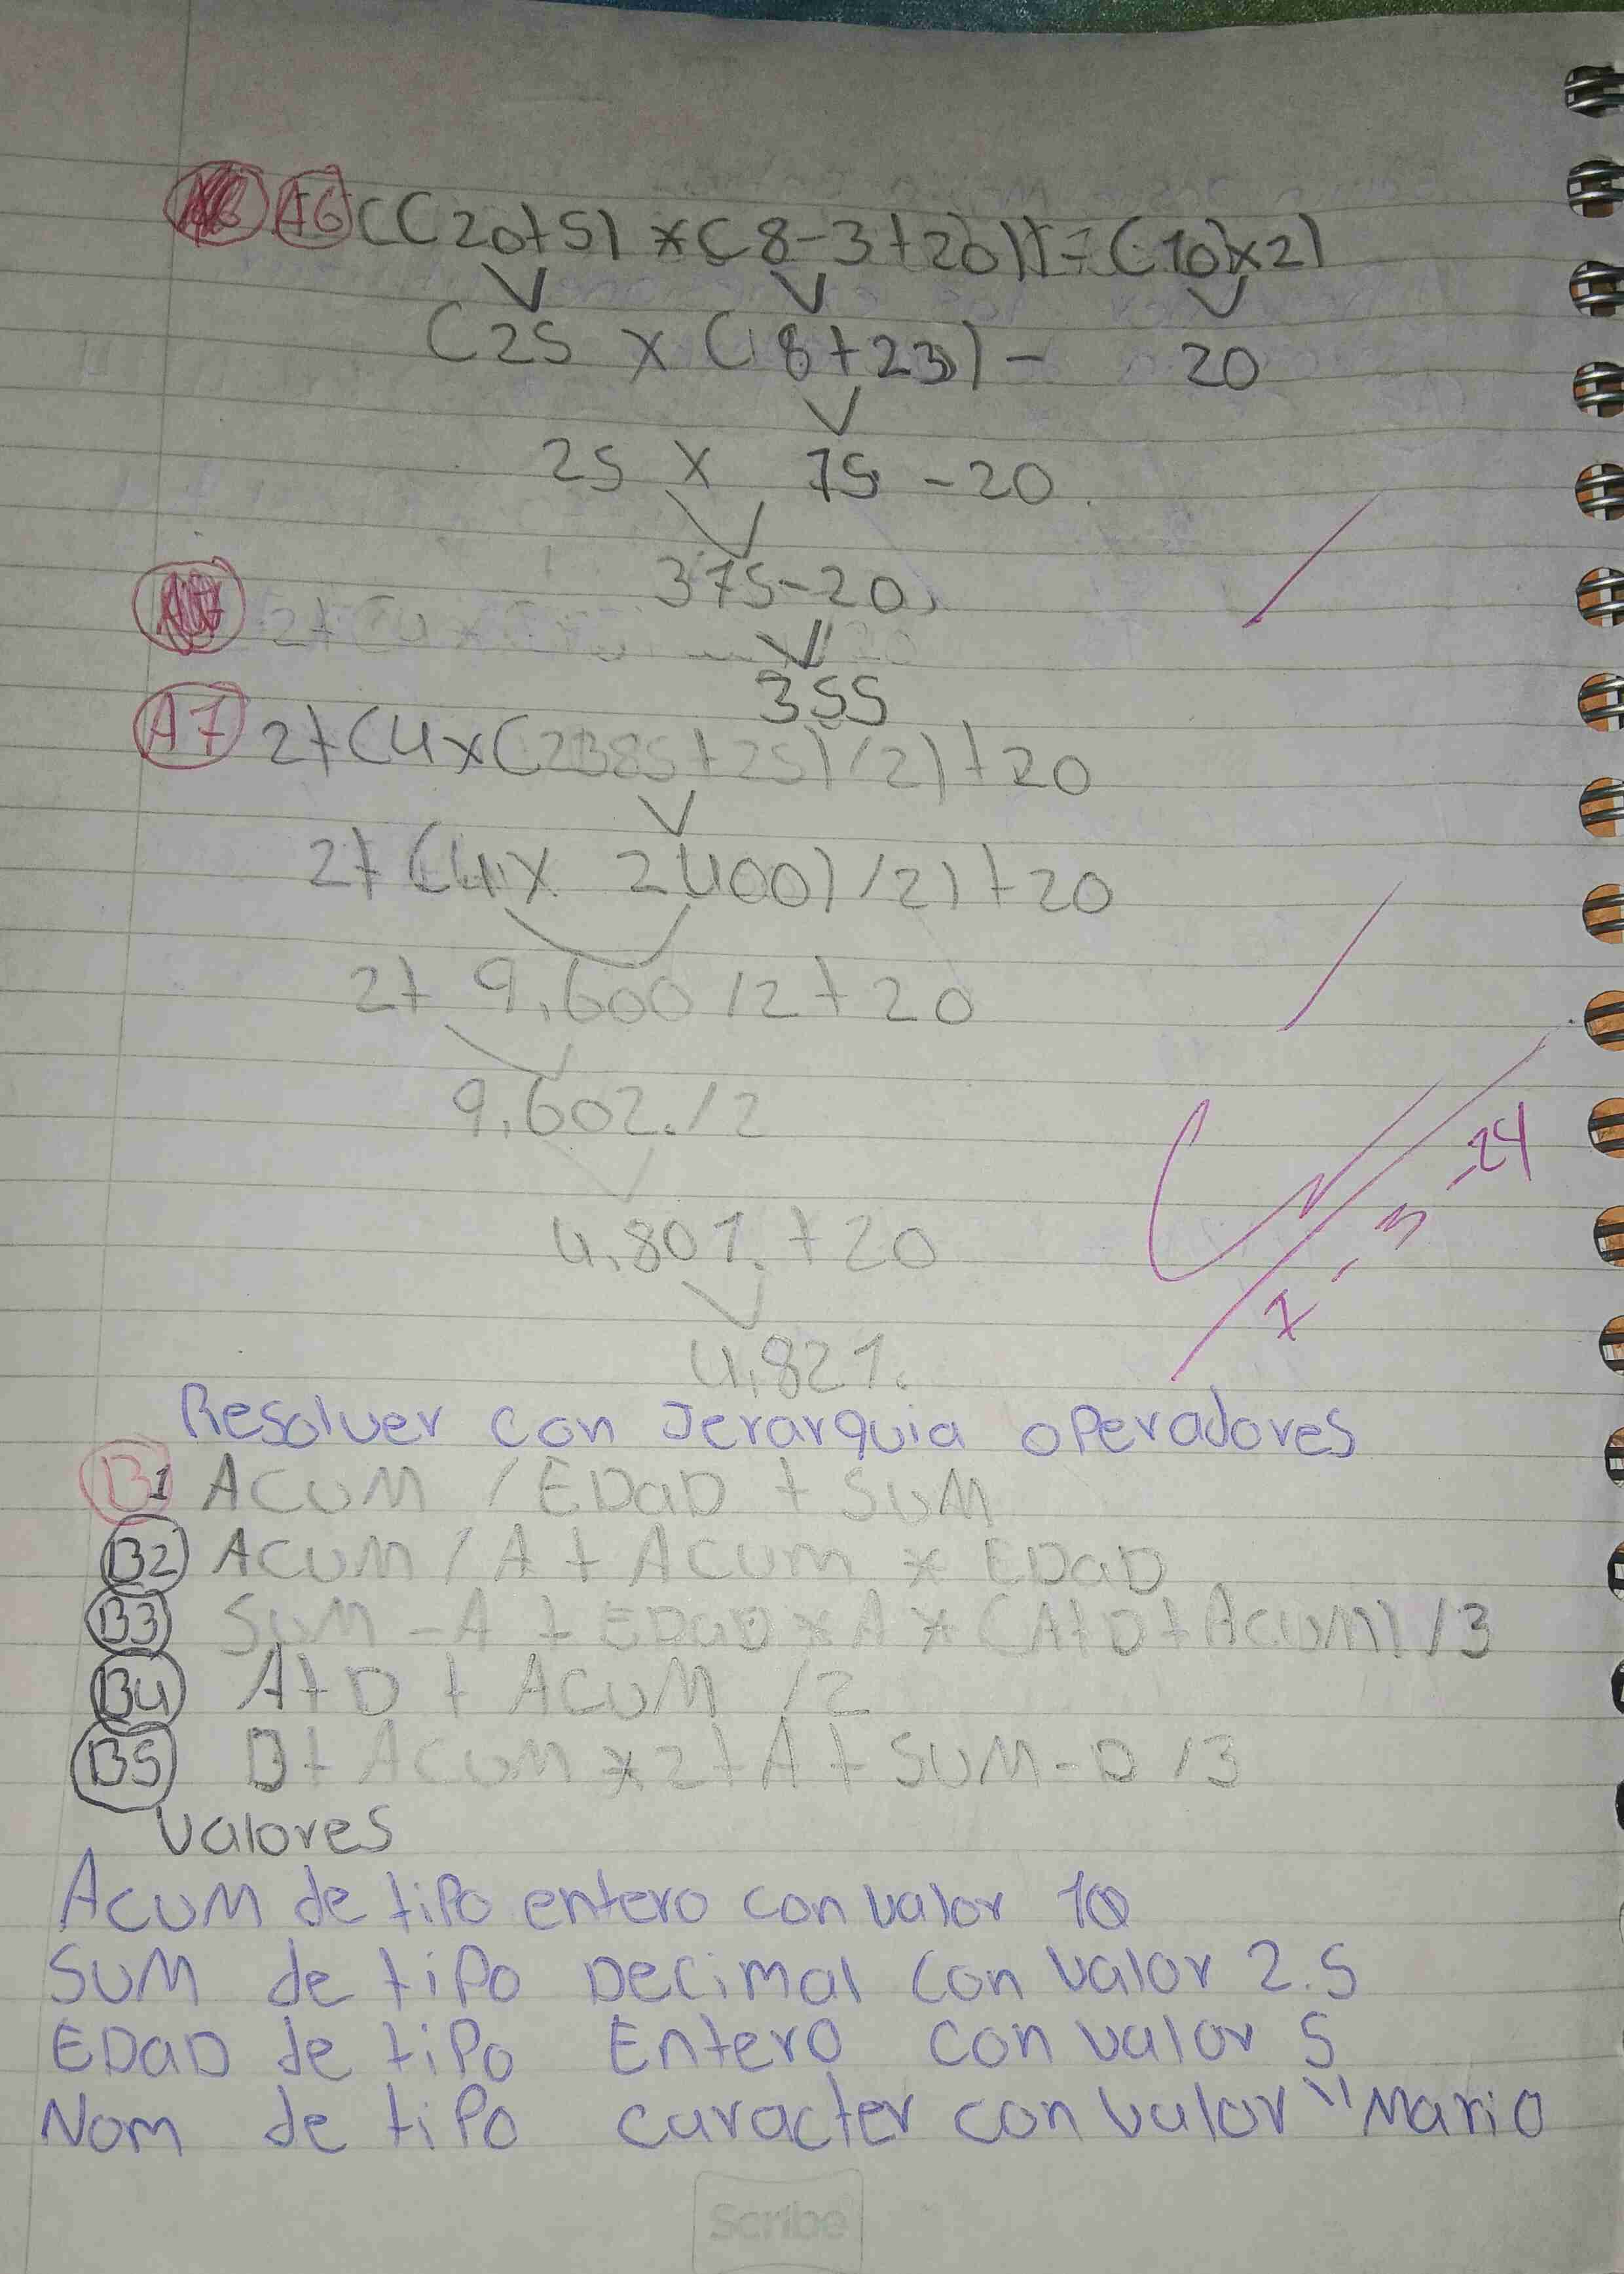 A6 ((20+5) * (8-3+20)) - (10)x2)
(25 x (8+23) - 20
25 x 75 - 20
375-20
355
A7 2+(4x(2385+25)/2)+20
2+(4x 2400)/2)+20
2+ 9,600 /2+20
9,602./2
4,801.+20
4,821.
7-3-24
Resolver con Jerarquia operadores
B1 ACUM / EDaD + SUM
B2 ACUM / A + ACUM * EDaD
B3 SUM - A + EDaD * A * (A+D+ACUM) /3
B4 A+D + ACUM /2
B5 D+ ACUM *2+A + SUM-D /3
Valores
ACUM de tipo entero con valor 10
SUM de tipo Decimal con valor 2.5
EDaD de tipo Entero con valor 5
Nom de tipo caracter con valor "Mario
Scribe